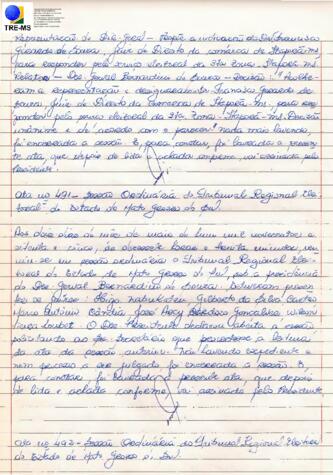 TRE-MS
representação do Juiz Geral - Propõe a indicação do Dr. Francisco
Gerardo de Sousa, Juiz de Direito da comarca de Itaporã-MS
para responder pelo serviço eleitoral da 31ª Zona - Itaporã-MS
Relator - Des. Gerval Bernardino de Souza - Decisão: "Acolhe-
ram a Representação e designaram o Dr. Francisco Gerardo de
Sousa, Juiz de Direito da Comarca de Itaporã-MS, para res-
ponder pela zona eleitoral da 31ª Zona - Itaporã-MS. Decisão
unânime e de acordo com o parecer." Nada mais havendo,
foi encerrada a sessão. E, para constar, foi lavrada a presen-
te ata, que depois de lida e achada conforme, vai assinada pelo
Presidente.
Ata nº 491 - Sessão Ordinária do Tribunal Regional Elei-
toral do Estado de Mato Grosso do Sul
Aos dois dias do mês de maio de hum mil e novecentos e
oitenta e cinco, às dezessete horas e trinta minutos, reu-
niu-se em sessão ordinária o Tribunal Regional Elei-
toral do Estado de Mato Grosso do Sul, sob a presidência
do Des. Gerval Bernardino de Souza. Estiveram presen-
tes os Juízes: Higa Nabukatsu, Gilberto da Silva Castro
Marco Antônio Cândia, José Goncalves
Loubet. O Des. Presidente declarou aberta a sessão,
solicitando ao Sr. Secretário que procedesse a leitura
da ata da sessão anterior. Não havendo expediente e
nem processo a ser julgado foi encerrada a sessão. E,
para constar, foi lavrada a presente ata, que depois
de lida e achada conforme, vai assinada pelo Presidente.
Ata nº 492 - Sessão Ordinária do Tribunal Regional Eleitoral
do Estado de Mato Grosso do Sul